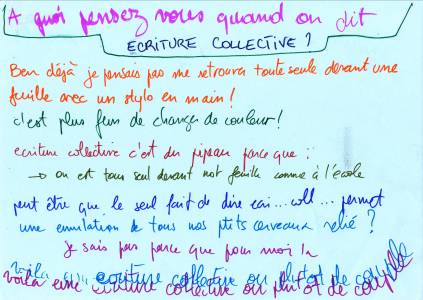 A quoi pensez vous quand on dit
ECRITURE COLLECTIVE ?
Ben déjà je pensais pas me retrouver toute seule devant une
feuille avec un stylo en main !
c'est plus fun de changer de couleur !
ecriture collective c'est du pipeau parce que :
→ on est tous seul devant not feuille comme à l'école
peut être que le seul fait de dire ecri... coll... permet
une emulation de tous nos ptits cerveaux relié ?
je sais pas parce que pour moi la
voila une ecriture collective ou plutot de couple
voila une ecriture collective ou plutot de couple